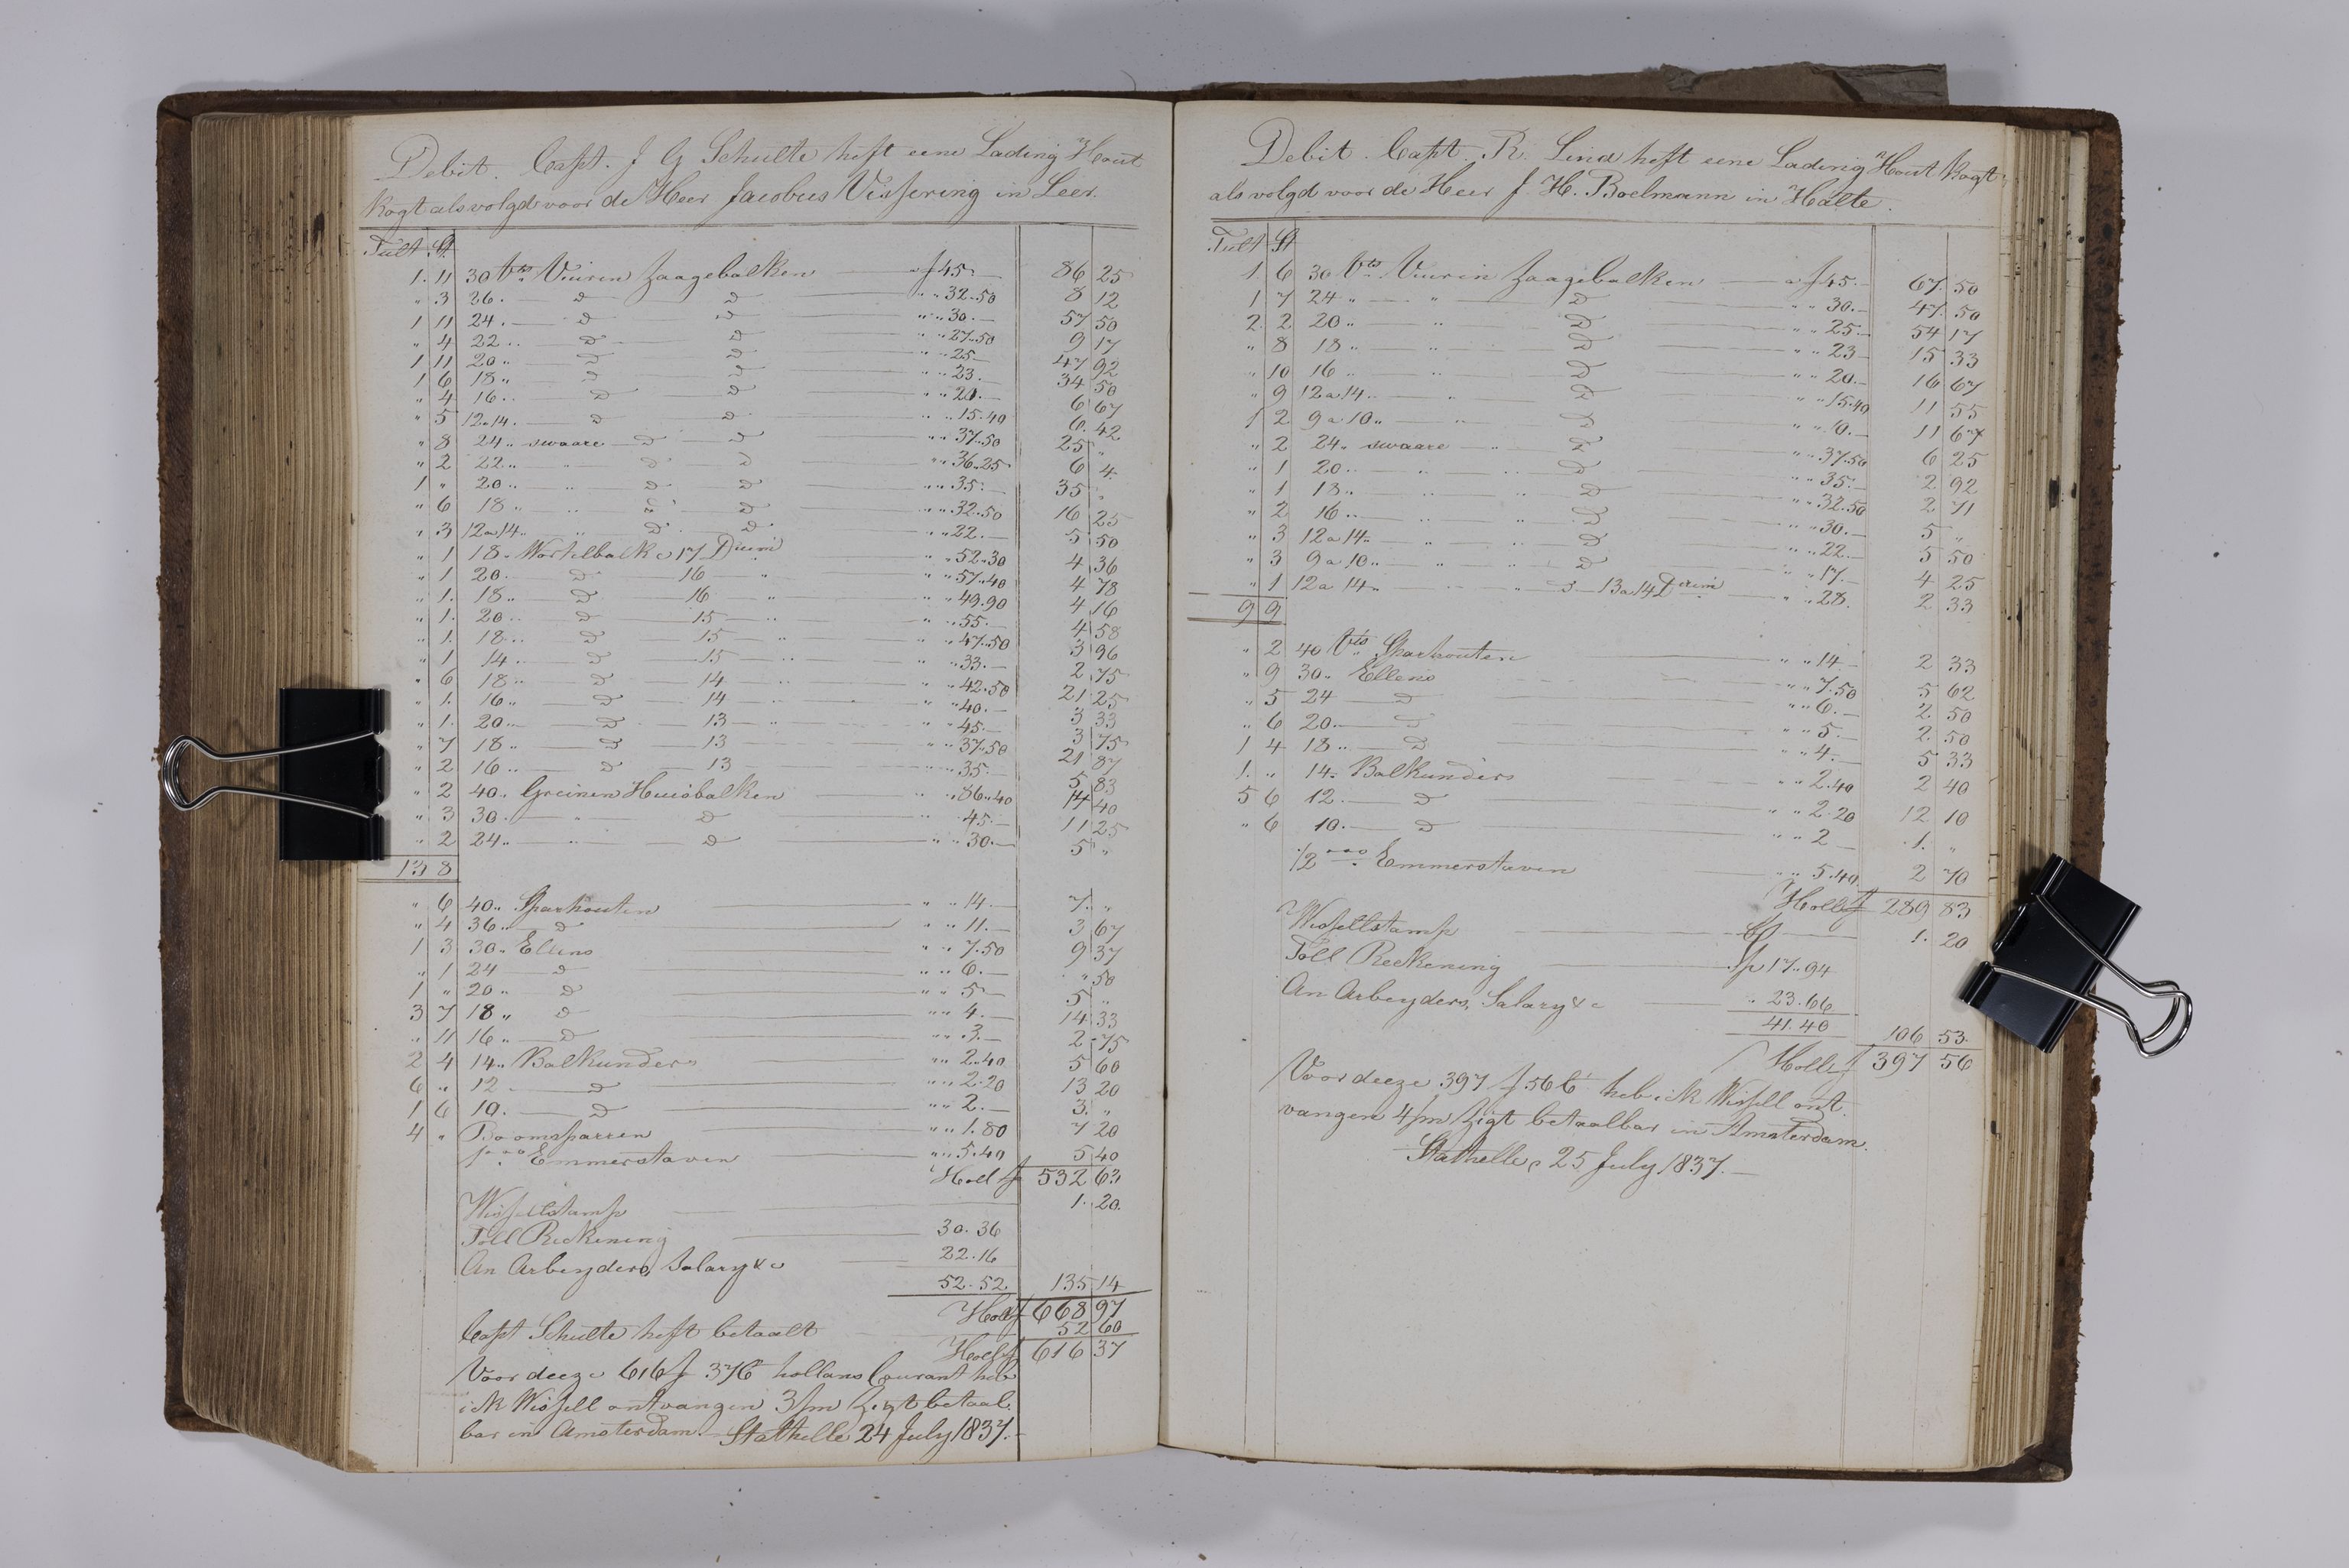 Debit. Capt. J G Schulte heft eene Lading Hout
kogt als volgd voor de Heer Jacobus Vissering in Leer.
Tult St.
1. 11 30 vts Vuiren Zaagebalken a f 45. 86 25
" 3 26. d d " " 32.50 8 12
1 11 24. d d " " 30. 57 50
" 4 22.. d d " " 27.50 9 17
1 11 20.. d d " " 25 47 92
1 6 18.. d d " " 23. 34 50
" 4 16.. d d " " 20. 6 67
" 5 12.14. d d " " 15.40 6. 42
" 8 24.. swaare d d " " 37.50 25 "
" 2 22.. " d d " " 36.25 6 4.
1 " 20.. " d d " " 35. 35 "
" 6 18.. " d d " " 32.50 16 25
" 3 12a14.. " d d " " 22. 5 50
" 1 18. Wortelbalk a 17 Duim " " 52.30 4 36
" 1 20. d 16 " " " 57.40 4 78
" 1. 18.. d 16 " " " 49.90 4 16
" 1. 20.. d 15 " " " 55. 4 58
" 1. 18.. d 15 " " " 47.50 3 96
" 1 14.. d 15 " " " 33. 2 75
" 6 18.. d 14 " " " 42.50 21 25
" 1. 16.. d 14 " " " 40. 3 33
" 1. 20.. d 13 " " " 45. 3 75
" 7 18.. d 13 " " 37.50 21 87
" 2 16.. d 13 " " 35. 5 83
" 2 40.. Greinen Huisbalken " " 86.40 14 40
" 3 30. " d " " 45. 11 25
" 2 24.. " d " " 30. 5 "
13 8
" 6 40.. Sparhouten " " 14. 7. "
" 4 36.. d " " 11. 3 67
1 3 30.. Ellens " " 7.50 9 37
" 1 24 d " " 6. " 50
1 " 20.. d " " 5 5 "
3 7 18.. d " " 4. 14 33
" 11 16.. d " " 3. 2 75
2 4 14.. Balkunders " " 2.40 5 60
6 " 12 d " " 2.20 13 20
1 6 10. d " " 2. 3. "
4 " Boomsparren " " 1.80 7 20
1000 Emmerstaven " " 5.40 5 40
Holl f 532 63
Wissellstamp 1. 20.
Toll Reckening 30.36
An Arbeyders, Salary &c 22.16
52.52. 135 14
Holl f 668 97
Capt Schulte heft betaalt 52 60
Holl f 616 37
Voor deeze 616 f 37 C hollans Courant heb
ick Wissell ontvangen 3/m Zigt betaal.
bar in Amsterdam. Stathelle 24 July 1837.
Debit. Capt. R. Lind heft eene Lading Hout kogt
als volgd voor de Heer J. H. Boelmann in Halte.
Tult St
1 6 30 vts Vuiren Zaagebalken a f 45. 67. 50
1 7 24.. " d " " 30. 47. 50
2. 2 20.. " d " " 25. 54 17
" 8 18.. " d " " 23 15 33
" 10 16.. " d " " 20. 16 67
" 9 12a14.. " d " " 15.40 11 55
1 2 9a10.. " d " " 10. 11 67
" 2 24.. swaare " d " " 37.50 6 25
" 1 20.. " " d " " 35. 2 92
" 1 18.. " " d " " 32.50 2 71
" 2 16.. " " d " " 30. 5 "
" 3 12a14.. " " d " " 22. 5 50
" 3 9a10.. " " d " " 17. 4 25
" 1 12a14.. " " d 13a14 Duim " " 28. 2 33
9 9
" 2 40 vts Sparhouten " " 14 2 33
" 9 30.. Ellens " " 7.50 5 62
" 5 24 d " " 6. 2. 50
" 6 20. d " " 5. 2. 50
1 4 18.. d " " 4. 5 33
1. " 14. Balkunders " " 2.40 2 40
5 6 12. d " " 2.20 12 10
" 6 10. d " " 2 1. "
1/2 ooo Emmerstaven " " 5.40. 2 70
Holl f 289 83
Wissellstamp 1. 20
Toll Reckening Sp 17.94
An Arbeyders, Salary &c " 23.66
41.40 106 53.
Holl f 397 56
Voor deeze 397 f 56 C heb ick Wissell ont
vangen 4/m Zigt betaalbar in Amsterdam.
Stathelle, 25 July 1837.